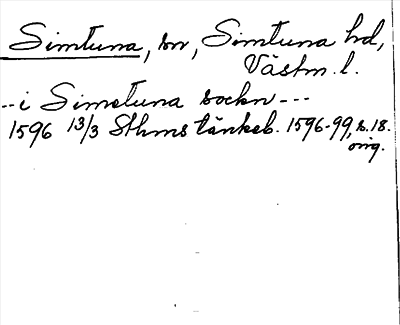 Simtuna, sn, Simtuna hd,
Västm. l.
--i Simetuna sockn---
1596 13/3 Sthms tänkeb. 1596-99, s. 18.
orig.